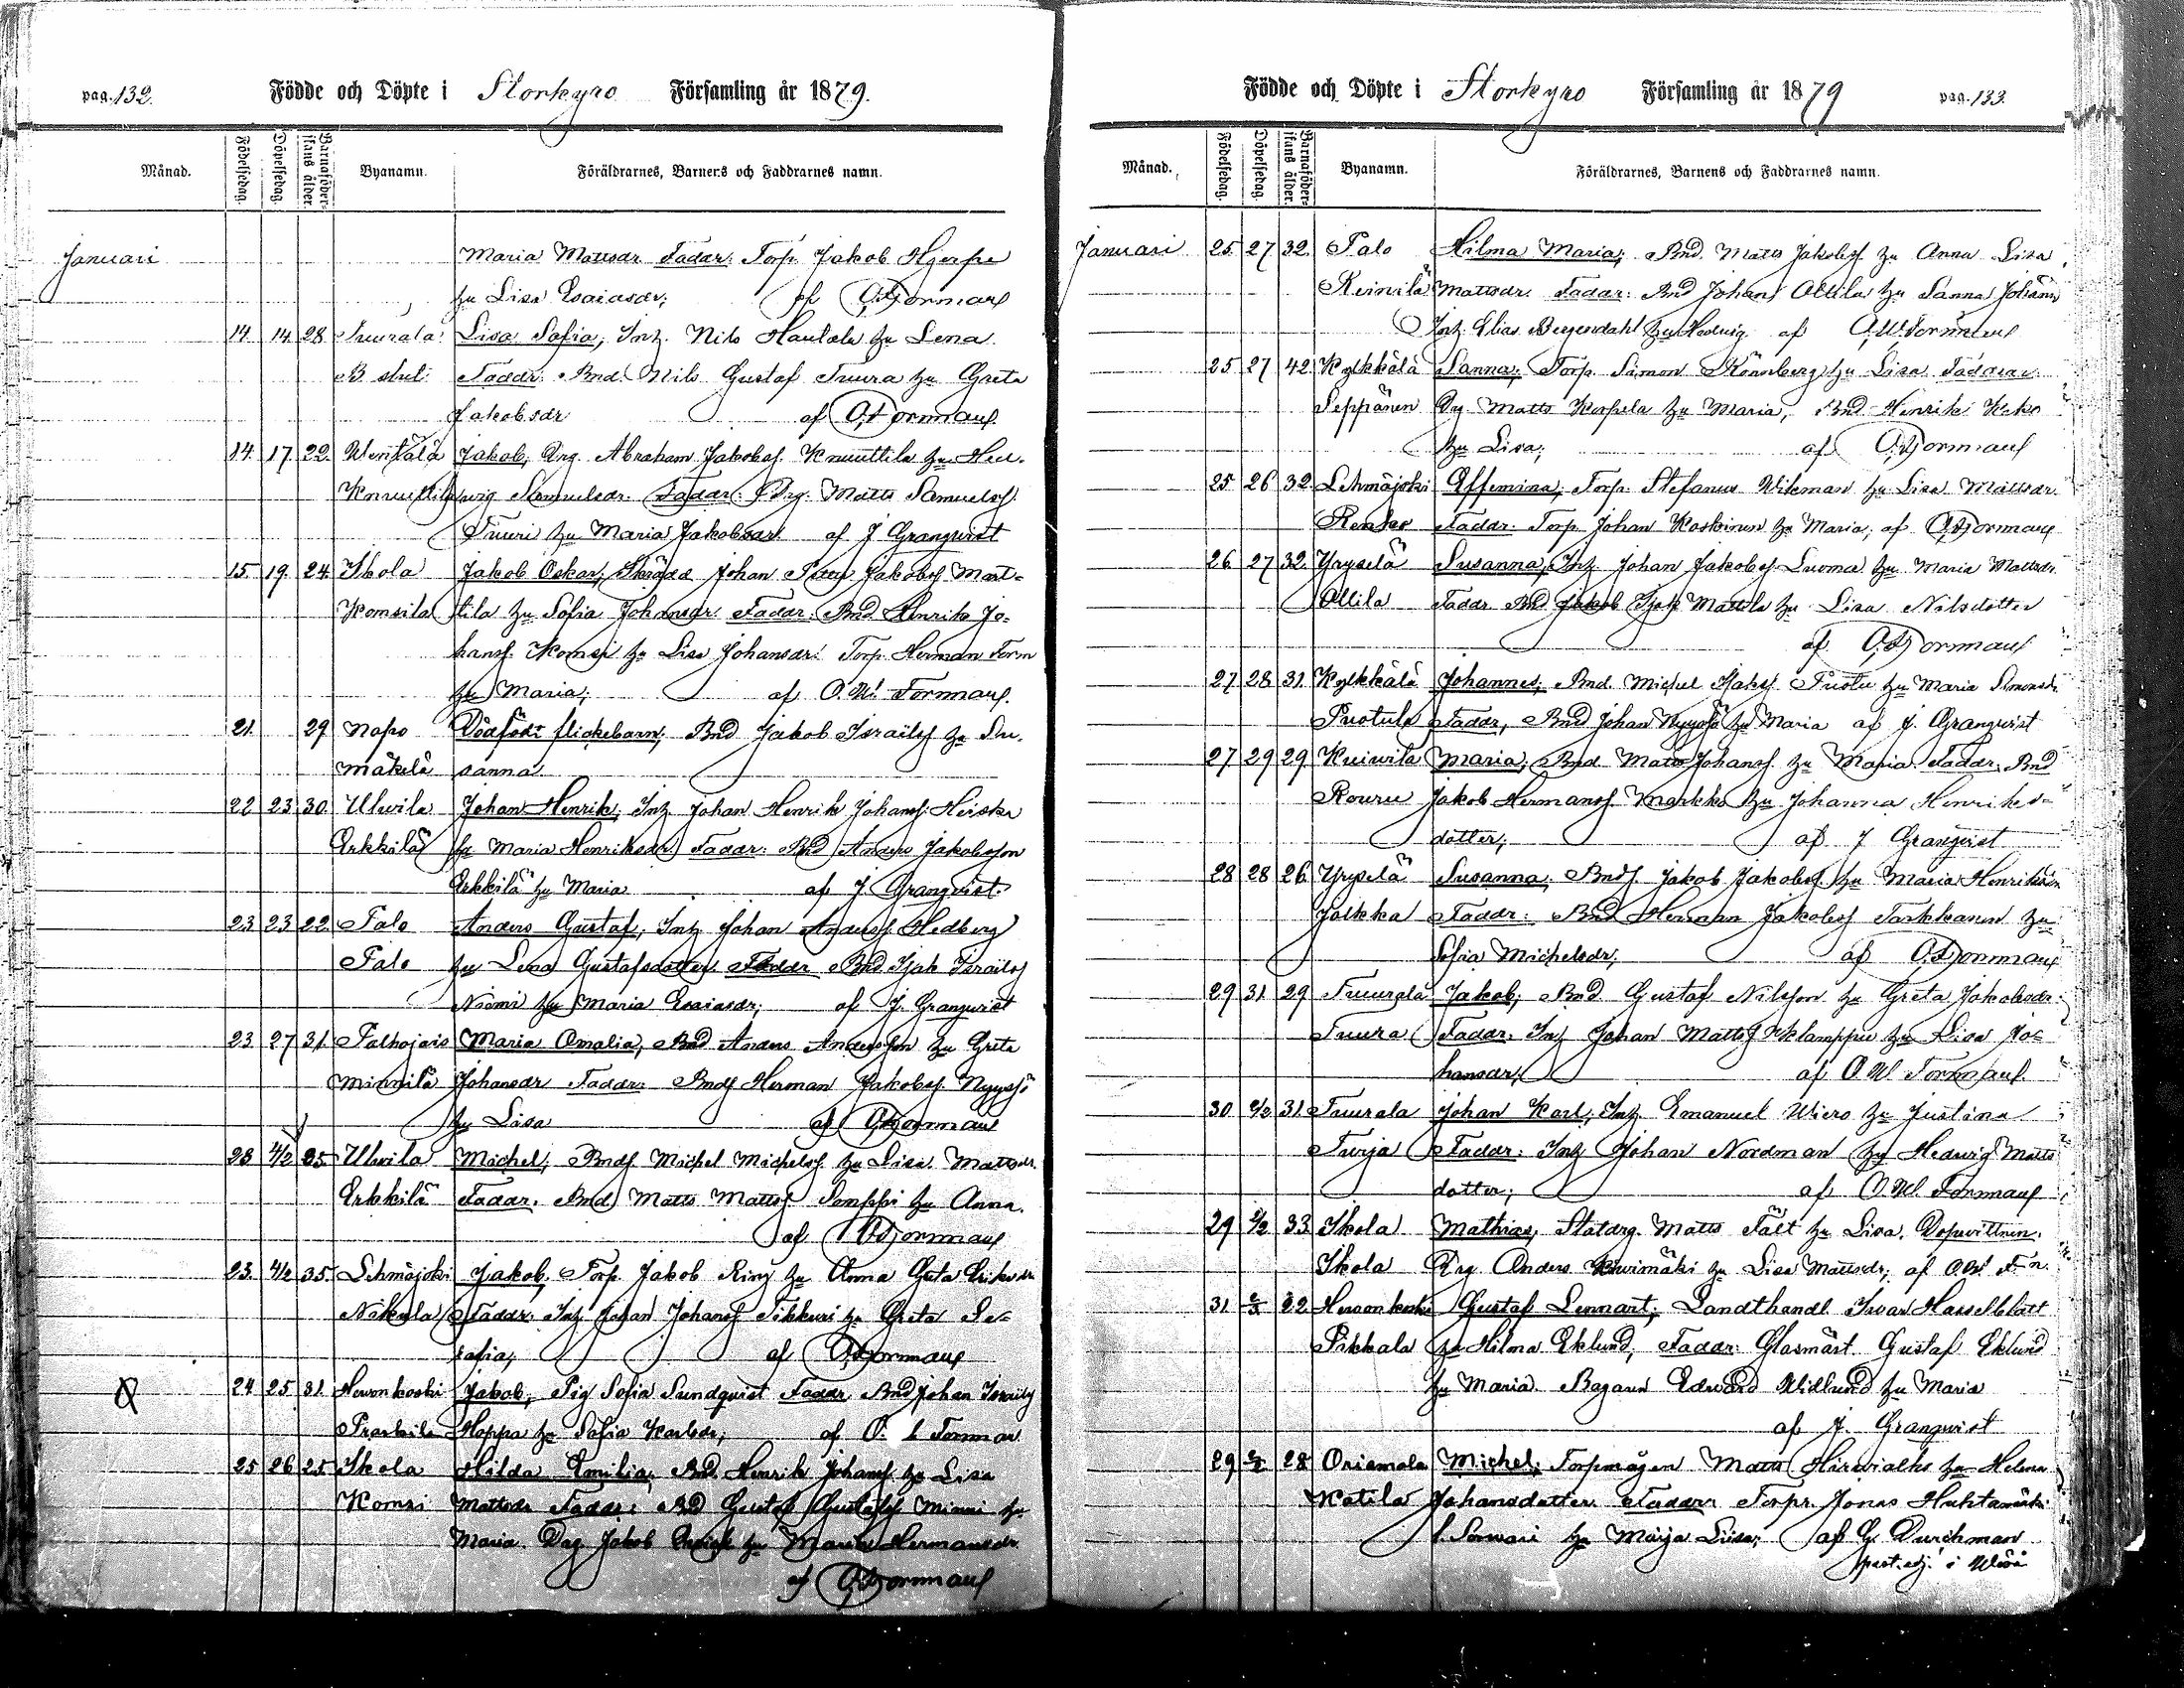 pag. 132.
Födde och Döpte i Storkyro Församling år 1879.
Månad. Födelsedag. Döpelsedag. Barnaföderskans ålder. Byanamn. Föräldrarnes, Barnens och Faddrarnes namn.
Januari Maria Mattsdr Faddr: Torp. Jakob Hjerpe
hu Lisa Esaiasdr; af O.W. Formanf
14. 14. 28 Tuurala Lisa Sofia, Inh. Nils Hautala hu Lena
B stul: Faddr: Bnd. Nils Gustaf Tuura hu Greta
Jakobsdr af O.W. Formanf
14. 17 22. Wentälä Jakob, Drg. Abraham Jakobsf. Knuuttila hu Hed-
Knuuttila wig Samuelsdr. Faddr: Drg. Matts Samuelsf
Tuuri hu Maria Jakobsdr af J Granqvist
15. 19. 24. Ikola Jakob Oskar, Johan Jakobsf Mart-
Komsila tila hu Sofia Johansdr. Faddr: Bnd. Henrik Jo-
hansf. Komsi hu Lisa Johansdr. Torp. Herman Form
hu Maria; af O.W. Formanf.
21. 29 Napo Dödfödt flickebarn; Bnd Jakob Israilsf hu Su-
Mäkelä sanna
22 23 30. Ulwila Johan Henrik; Inh. Johan Henrik Johansf. Heiska
Erkkilä hu Maria Henriksdr Faddr: Bnd Anders Jakobsson
Erkkilä hu Maria af J. Granqvist.
23 23 22 Palo Anders Gustaf, Inh Johan Andersf. Hedberg
Palo hu Lena Gustafsdotter. Faddr Bnd Isak Israilsf
Niemi hu Maria Esaiasdr; af J. Granqvist
23 27 31. Palhojais Maria Amalia, Bnd Anders Andersson hu Greta
Minnilä Johansdr Faddr: Bndf Herman Jakobsf. Nyyssö
hu Lisa af O.W. Formanf
23 4/2 25 Ulwila Michel; Bndf. Michel Michelsf. hu Lisa Mattsdr.
Erkkilä Faddr. Bnd Matts Mattsf. Sempi hu Anna.
af O.W. Formanf
23. 4/2 35. Lehmäjoki Jakob, Torp. Jakob Ring hu Anna Greta Eriksdr
Nikula Faddr: Inh Johan Johansf Tikkuri hu Greta Se-
rafia; af O.W. Formanf
24 25 31. Herwonkoski Jakob, Pig Sofia Sundqvist Faddr Bnd Johan Israilsf
Hoppa hu Sofia Karlsdr; af O. W Forman
25 26 25 Ikola Hilda Emilia; Bnd. Henrik Johansf. hu Lisa
Komsi Mattsdr Faddr: Bnd Gustaf Gustafsf Minni hu
Maria. Drg Jakob hu Maria Hermansdr
af O.W. Formanf
Födde och Döpte i Storkyro Församling år 1879 pag. 133.
Månad. Födelsedag. Döpelsedag. Barnaföderskans ålder. Byanamn. Föräldrarnes, Barnens och Faddrarnes namn.
Januari 25 27 32. Palo Hilma Maria; Bnd. Matts Jakobsf. hu Anna Lisa
Reinilä Mattsdr. Faddr: Bnd Johan Ollila hu Sanna Johansdr
Inh. Elias Bergendahl hu Hedwig af O.W. Formanf
25 27 42 Kylkkälä Sanna; Torp. Simon hu Lisa Faddrar:
Seppänen Drg Matts Karpela hu Maria, Bnd Henrik Keko
hu Lisa; af O.W. Formanf
25 26 32 Lehmäjoki Effemina; Torp. Stefanus Wikman hu Lisa Mattsdr.
Renko Faddr: Torp. Johan Koskinen hu Maria; af O.W. Formanf
26 27 32 Yryselä Susanna; Inh Johan Jakobsf Luoma hu Maria Mattsdr
Ollila Faddr Bnd Jakob Isak Mattila hu Lisa Nilsdotter
af O.W. Formanf
27 28 31 Kylkkälä Johannes; Bnd. Michel Isaksf. Puotu hu Maria Simonsdr
Puotula Faddr, Bnd Johan Nyyssö hu Maria af J. Granqvist
27 29 29 Kuiwila Maria; Bnd. Matts Johansf. hu Maria. Faddr. Bnd
Rouru Jakob Hermansf. Markko hu Johanna Henriks-
dotter; af J Granqvist
28 28 26 Yryselä Susanna; Bndf. Jakob Jakobsf. hu Maria Henriksdr
Jaikka Faddr: Bnd Herman Jakobsf Tarkkanen hu
Sofia Michelsdr; af O.W. Formanf
29 31 29 Tuurala Jakob; Bnd Gustaf Nilsson hu Greta Jakobsdr.
Tuura Faddr. Inh Johan Mattsf Klamppu hu Lisa Jo-
hansdr; af O.W. Formanf.
30. 2/2 31. Tuurala Johan Karl; Inh. Emanuel Wiero hu Justina
Turja Faddr: Inh Johan Nordman hu Hedwig Matts
dotter; af O.W. Formanf
29 2/2 33 Ikola Mathias, Statdrg. Matts Fält hu Lisa. Dopwittnen.
Ikola Drg Anders Kiwimäki hu Lisa Mattsdr; af O.W. F-n.
31 22 Herwonkoski Gustaf Lennart; Landthandl. Iwar Hasselblatt
Pikkala hu Hilma Eklund, Faddr: Glasmäst. Gustaf Eklund
hu Maria. Bagarn Edward Widlund hu Maria
af J. Granqvist
29 28 Orismala Michel; Torpmågen Matts hu Helena
Kotila Johansdotter. Faddr: Torpr. Jonas Huhtamäki
hu Maija Liisa; af G. Durchman
past. adj. i Wörå